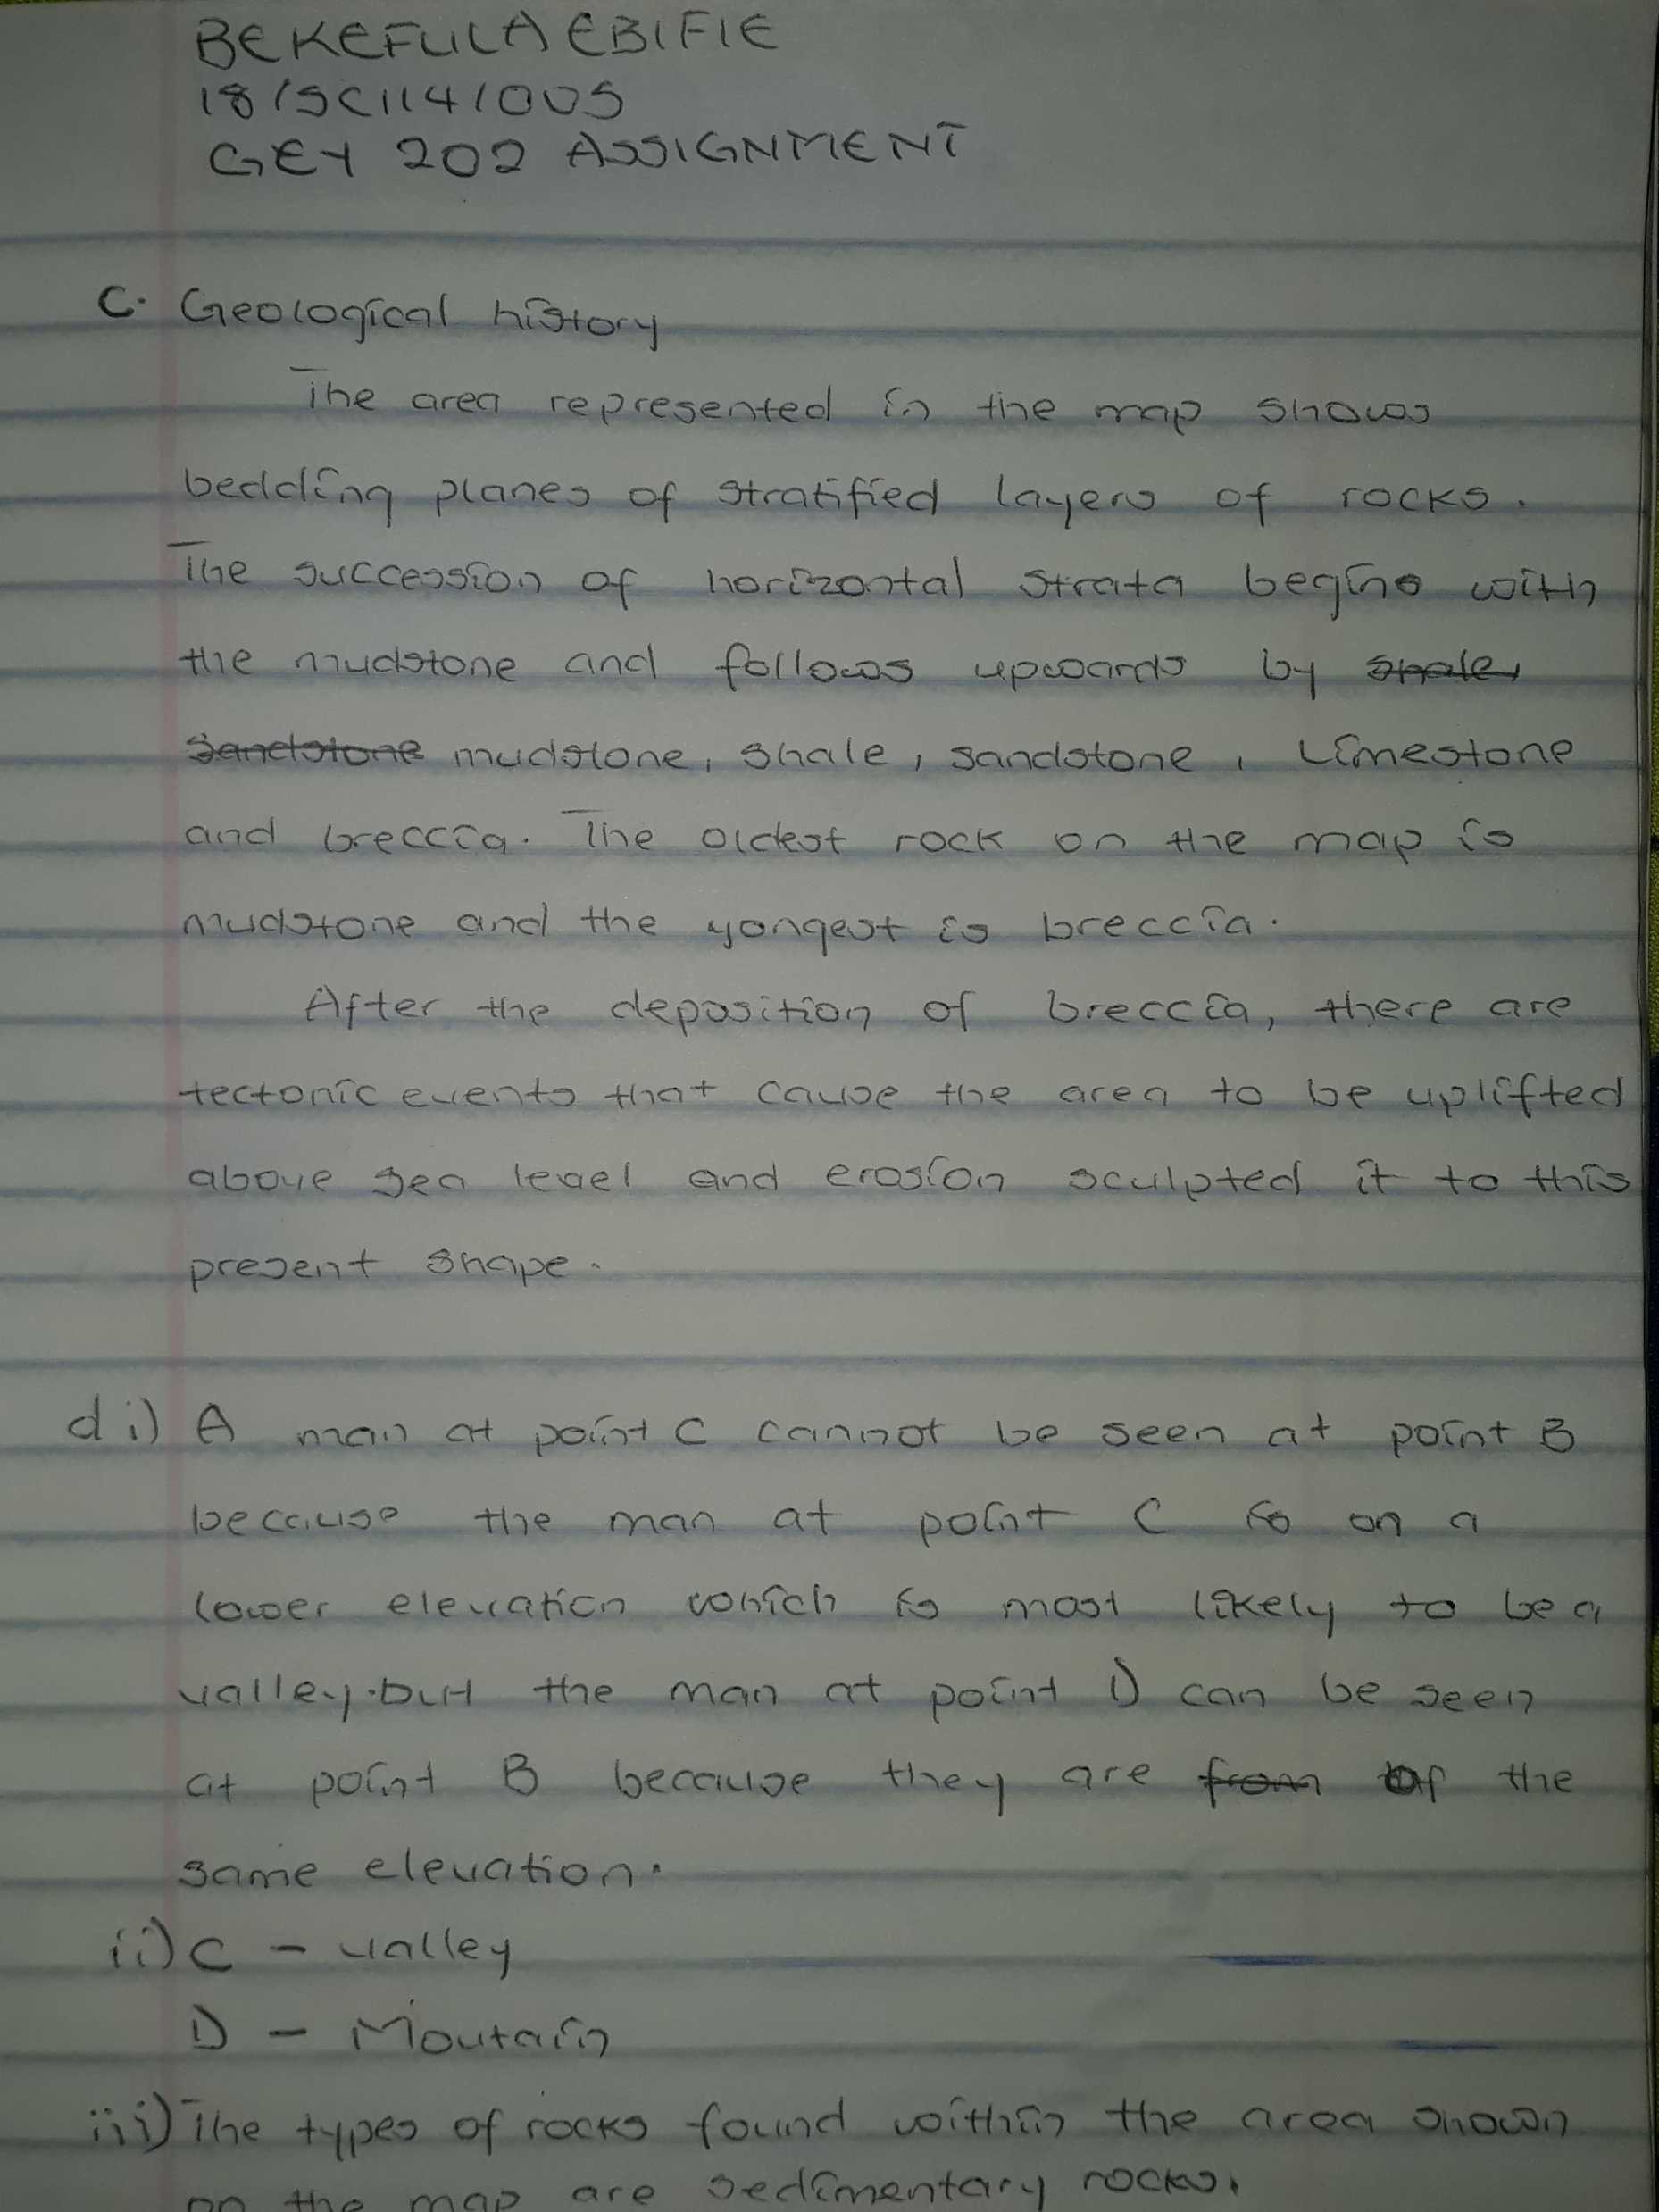 BEKEFULA EBIFIE
18/SCI14/005
GEY 202 ASSIGNMENT
C. Geological history
The area represented in the map shows
bedding planes of stratified layers of rocks.
The succession of horizontal strata begins with
the mudstone and follows upwards by shale,
sandstone mudstone, shale, sandstone, Limestone
and breccia. The oldest rock on the map is
mudstone and the yongest is breccia.
After the deposition of breccia, there are
tectonic events that cause the area to be uplifted
above sea level and erosion sculpted it to this
present shape.
d i) A man at point C cannot be seen at point B
because the man at point C is on a
lower elevation which is most likely to be a
valley. but the man at point D can be seen
at point B because they are from of the
same elevation.
ii) C - valley
D - Moutain
iii) The types of rocks found within the area shown
on the map are sedimentary rocks.